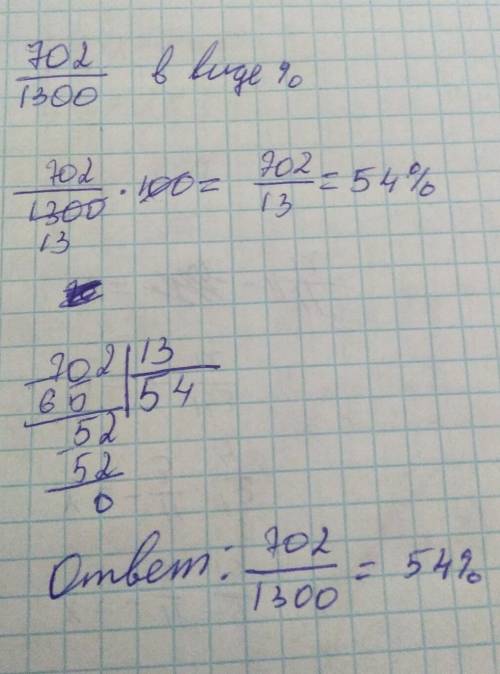 702/1300 в виде %
702/1300 · 100 = 702/13 = 54%
13
702 | 13
60 | 54
52
52
0
Ответ: 702/1300 = 54%